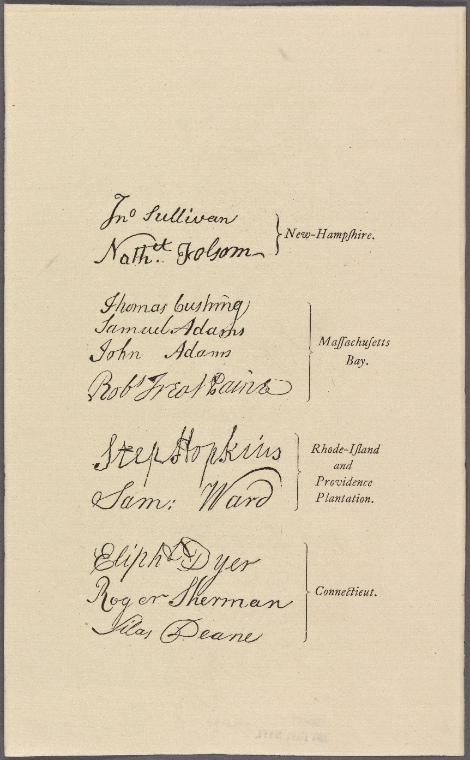 Jno Sullivan
Nathel. Folsom
New-Hampſhire.
Thomas Cushing
Samuel Adams
John Adams
Robt Treat Paine
Maſſachuſetts
Bay.
Step Hopkins
Sam: Ward
Rhode-Iſland
and
Providence
Plantation.
Eliphlt Dyer
Roger Sherman
Silas Deane
Connecticut.